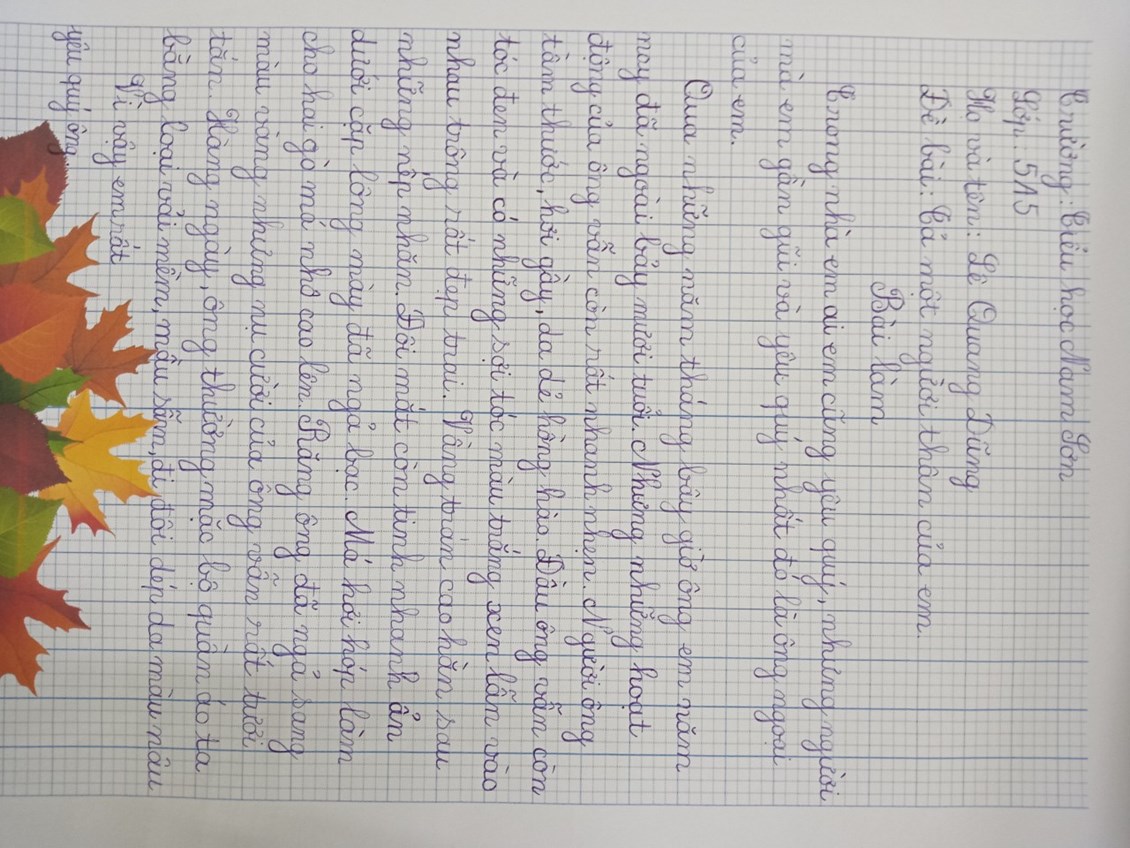 Trường: Tiểu học Nam Sơn
Lớp: 5A5
Họ và tên: Lê Quang Dũng
Đề bài: Tả một người thân của em.
Bài làm
Trong nhà em ai em cũng yêu quý, nhưng người
mà em gần gũi và yêu quý nhất đó là ông ngoại
của em.
Qua những năm tháng bây giờ ông em năm
nay đã ngoài bảy mươi tuổi. Nhưng những hoạt
động của ông vẫn còn rất nhanh nhẹn. Người ông
tầm thước, hơi gầy, da dẻ hồng hào. Đầu ông vẫn còn
tóc đen và có những sợi tóc màu trắng xen lẫn vào
nhau trông rất đẹp trai. Vầng trán cao hằn sau
những nếp nhăn. Đôi mắt còn tinh nhanh ẩn
dưới cặp lông mày đã ngả bạc. Má hơi hóp làm
cho hai gò má nhô cao lên. Răng ông đã ngả sang
màu vàng nhưng nụ cười của ông vẫn rất tươi
tắn. Hàng ngày, ông thường mặc bộ quần áo ta
bằng loại vải mềm, mầu sẫm, đi đôi dép da màu nâu
Vì vậy em rất
yêu quý ông